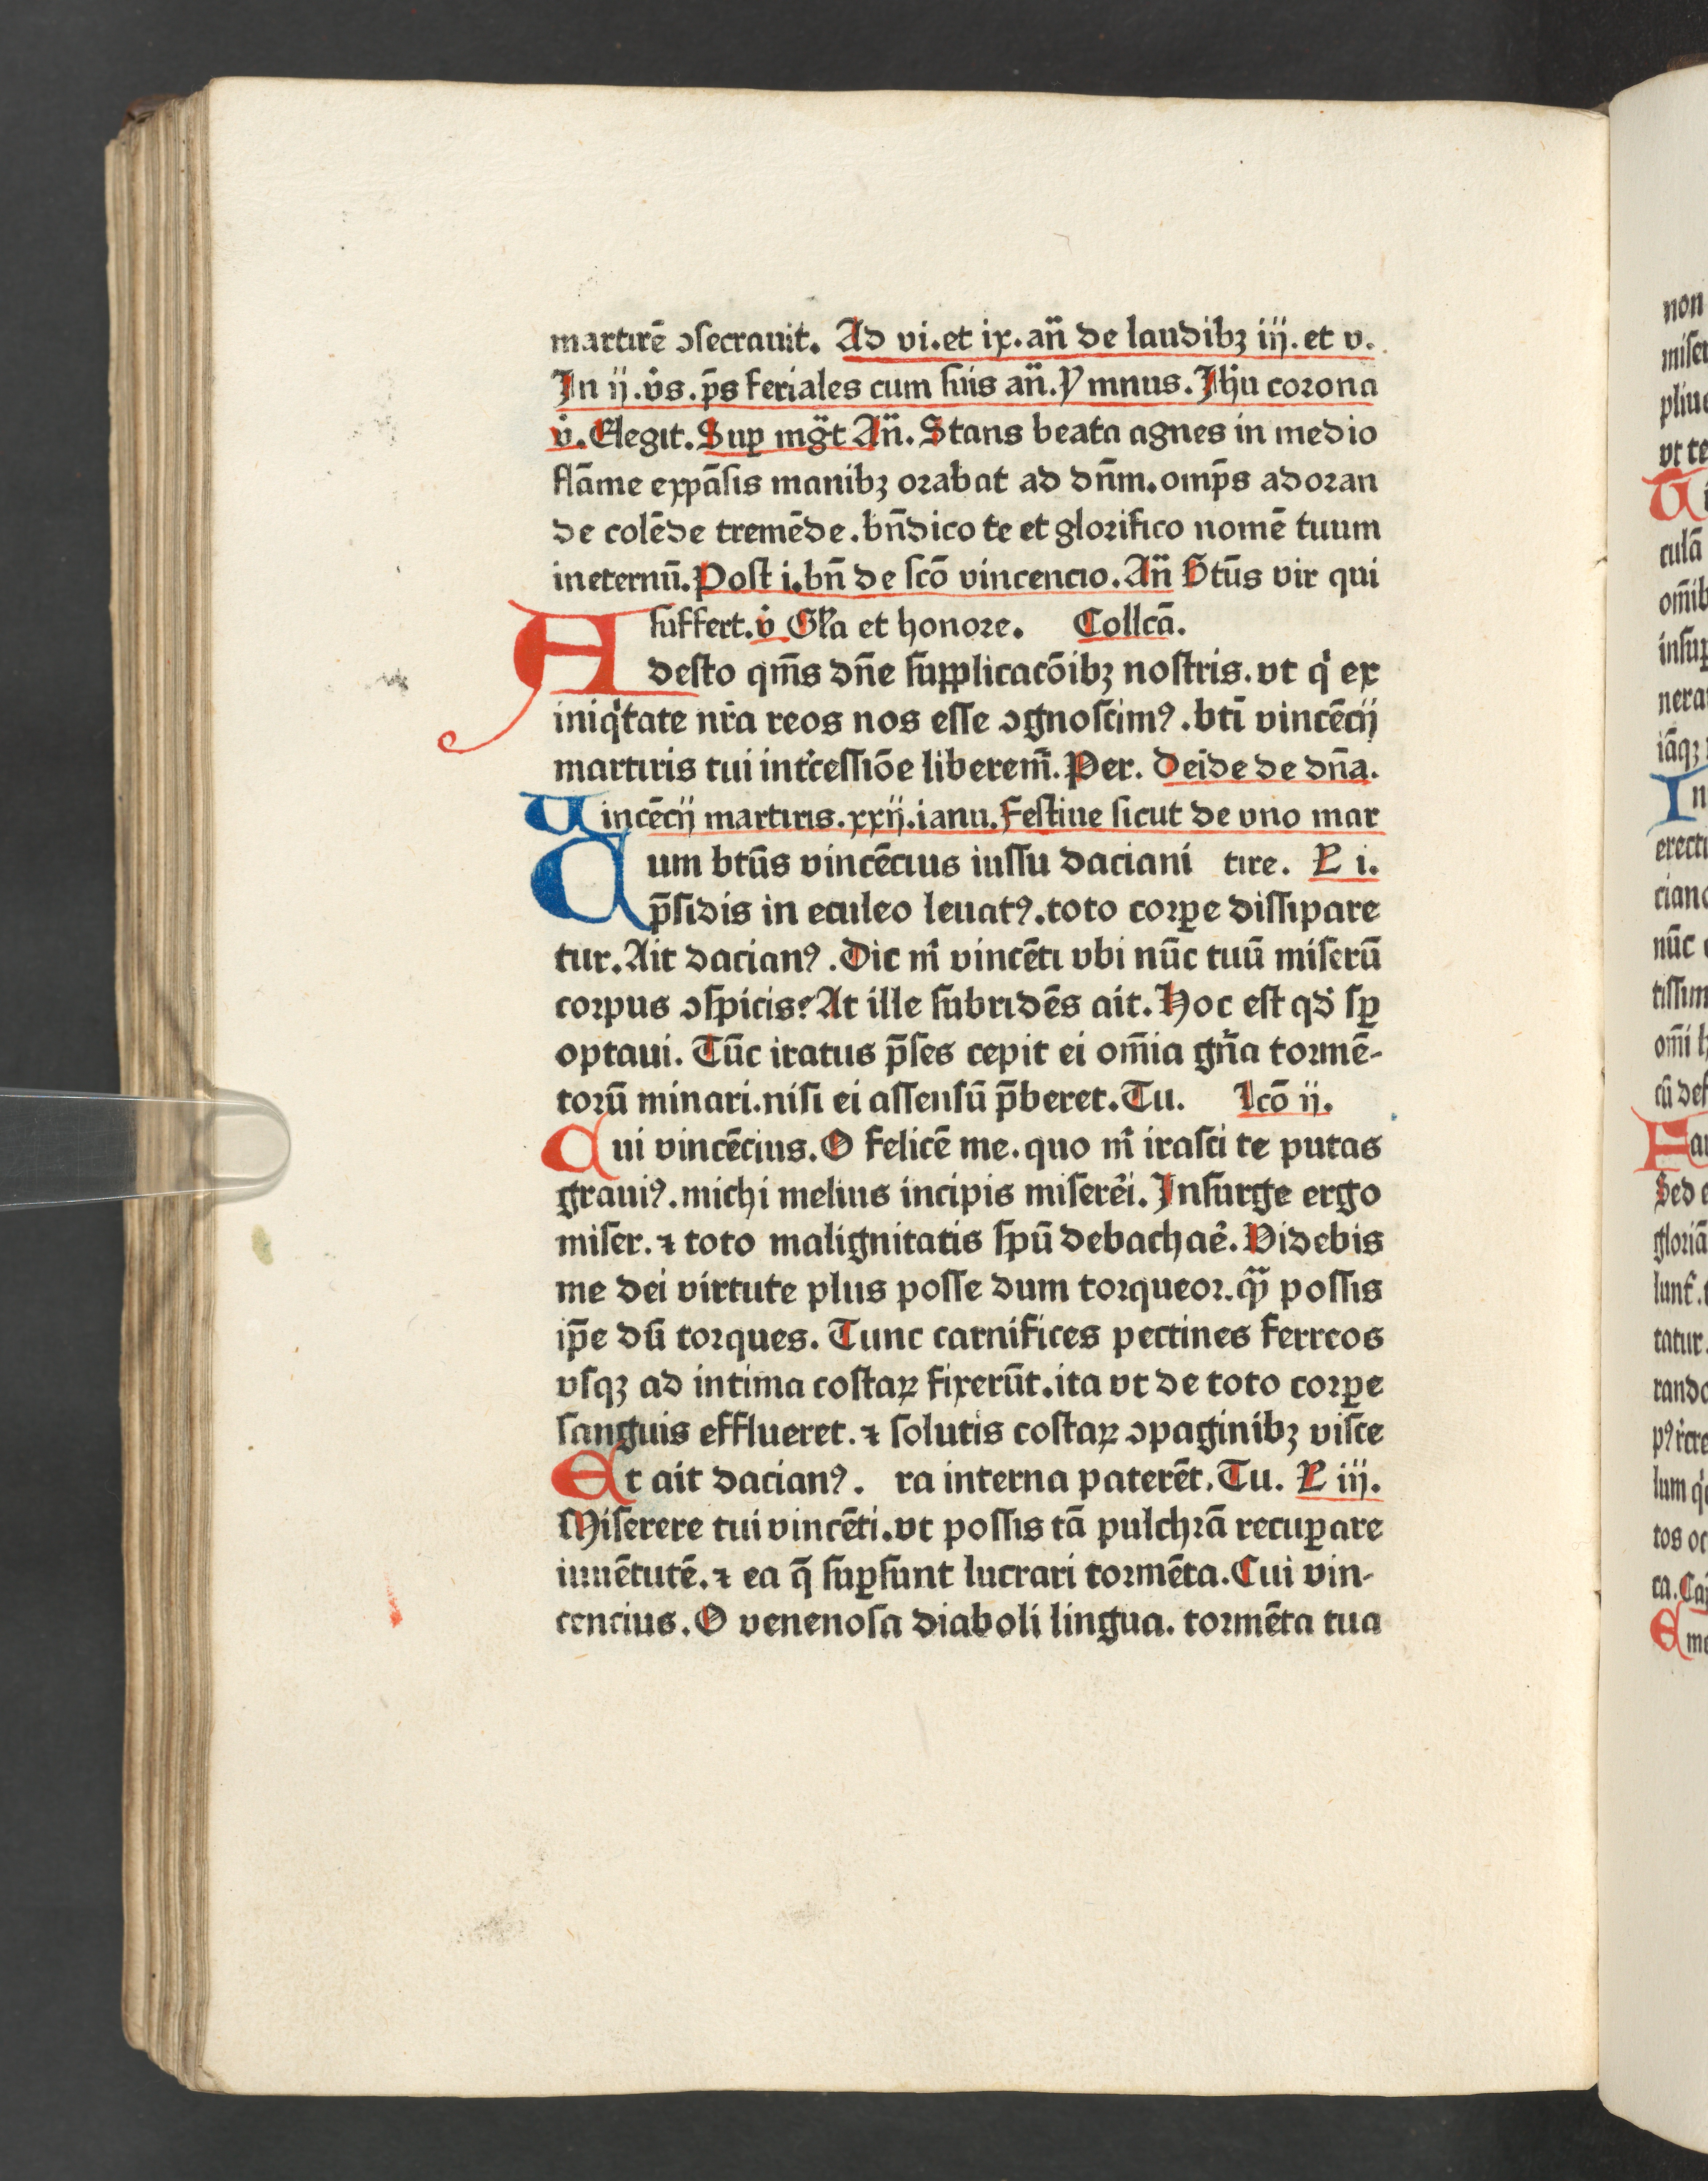 martirē ↄſecrauit. Ad vi. et ix. an̄ de laudibꝫ iij. et v.
Jn ij. v̊s. p̄s feriales cum ſuis an̄. Ymnus. Jh̄u coꝛona
v̊. Elegit. Suꝑ mḡt An̄. Stans beata agnes in medio
flāme expāſis manibꝫ oꝛabat ad dn̄m. omp̄s adoꝛan
de colēde tremēde. bn̄dico te et gloꝛifico nomē tuum
ineternū. Poſt i. bn̄ de ſcō vincencio. An̄ Btūs vir qui
ſuffert. v̊ Gl̄a et honoꝛe. Collcā.
Adeſto qm̄s dn̄e ſupplicacōibꝫ noſtris. vt qͥ ex
iniqͥtate nr̄a reos nos eſſe ↄgnoſcimꝰ. btī vincēcij
martiris tui int̄ceſſiōe liberem̄. Per. Deīde de dn̄a.
Vincēcij martiris. xxij. ianu. Feſtiue ſicut de vno mar
Cum btūs vincēcius iuſſu daciani tire. L i.
p̄ſidis in eculeo leuatꝰ. toto coꝛꝑe diſſipare
tur. Ait dacianꝰ. Dic m̄ vincēti vbi nūc tuū miſerū
coꝛpus ↄſpicis? At ille ſubridēs ait. Hoc eſt qd̄ ſꝑ
optaui. Tūc iratus p̄ſes cepit ei om̄ia gn̄a toꝛmē-
toꝛū minari. niſi ei aſſenſū p̄beret. Tu. Lcō ij.
Cui vincēcius. O felicē me. quo m̄ iraſci te putas
grauiꝰ. michi melius incipis miſerēi. Jnſurge ergo
miſer. ⁊ toto malignitatis ſpū debachaē. Videbis
me dei virtute plus poſſe dum toꝛqueoꝛ. qᷓ poſſis
ip̄e dū toꝛques. Tunc carnifices pectines ferreos
vſqꝫ ad intima coſtaꝝ fixerūt. ita vt de toto coꝛꝑe
ſanguis efflueret. ⁊ ſolutis coſtaꝝ ↄpaginibꝫ viſce
Et ait dacianꝰ. ra interna paterēt. Tu. L iij.
Miſerere tui vincēti. vt poſſis tā pulchꝛā recuꝑare
iuuētutē. ⁊ ea q̄ ſuꝑſunt lucrari toꝛmēta. Cui vin-
cencius. O venenoſa diaboli lingua. toꝛmēta tua